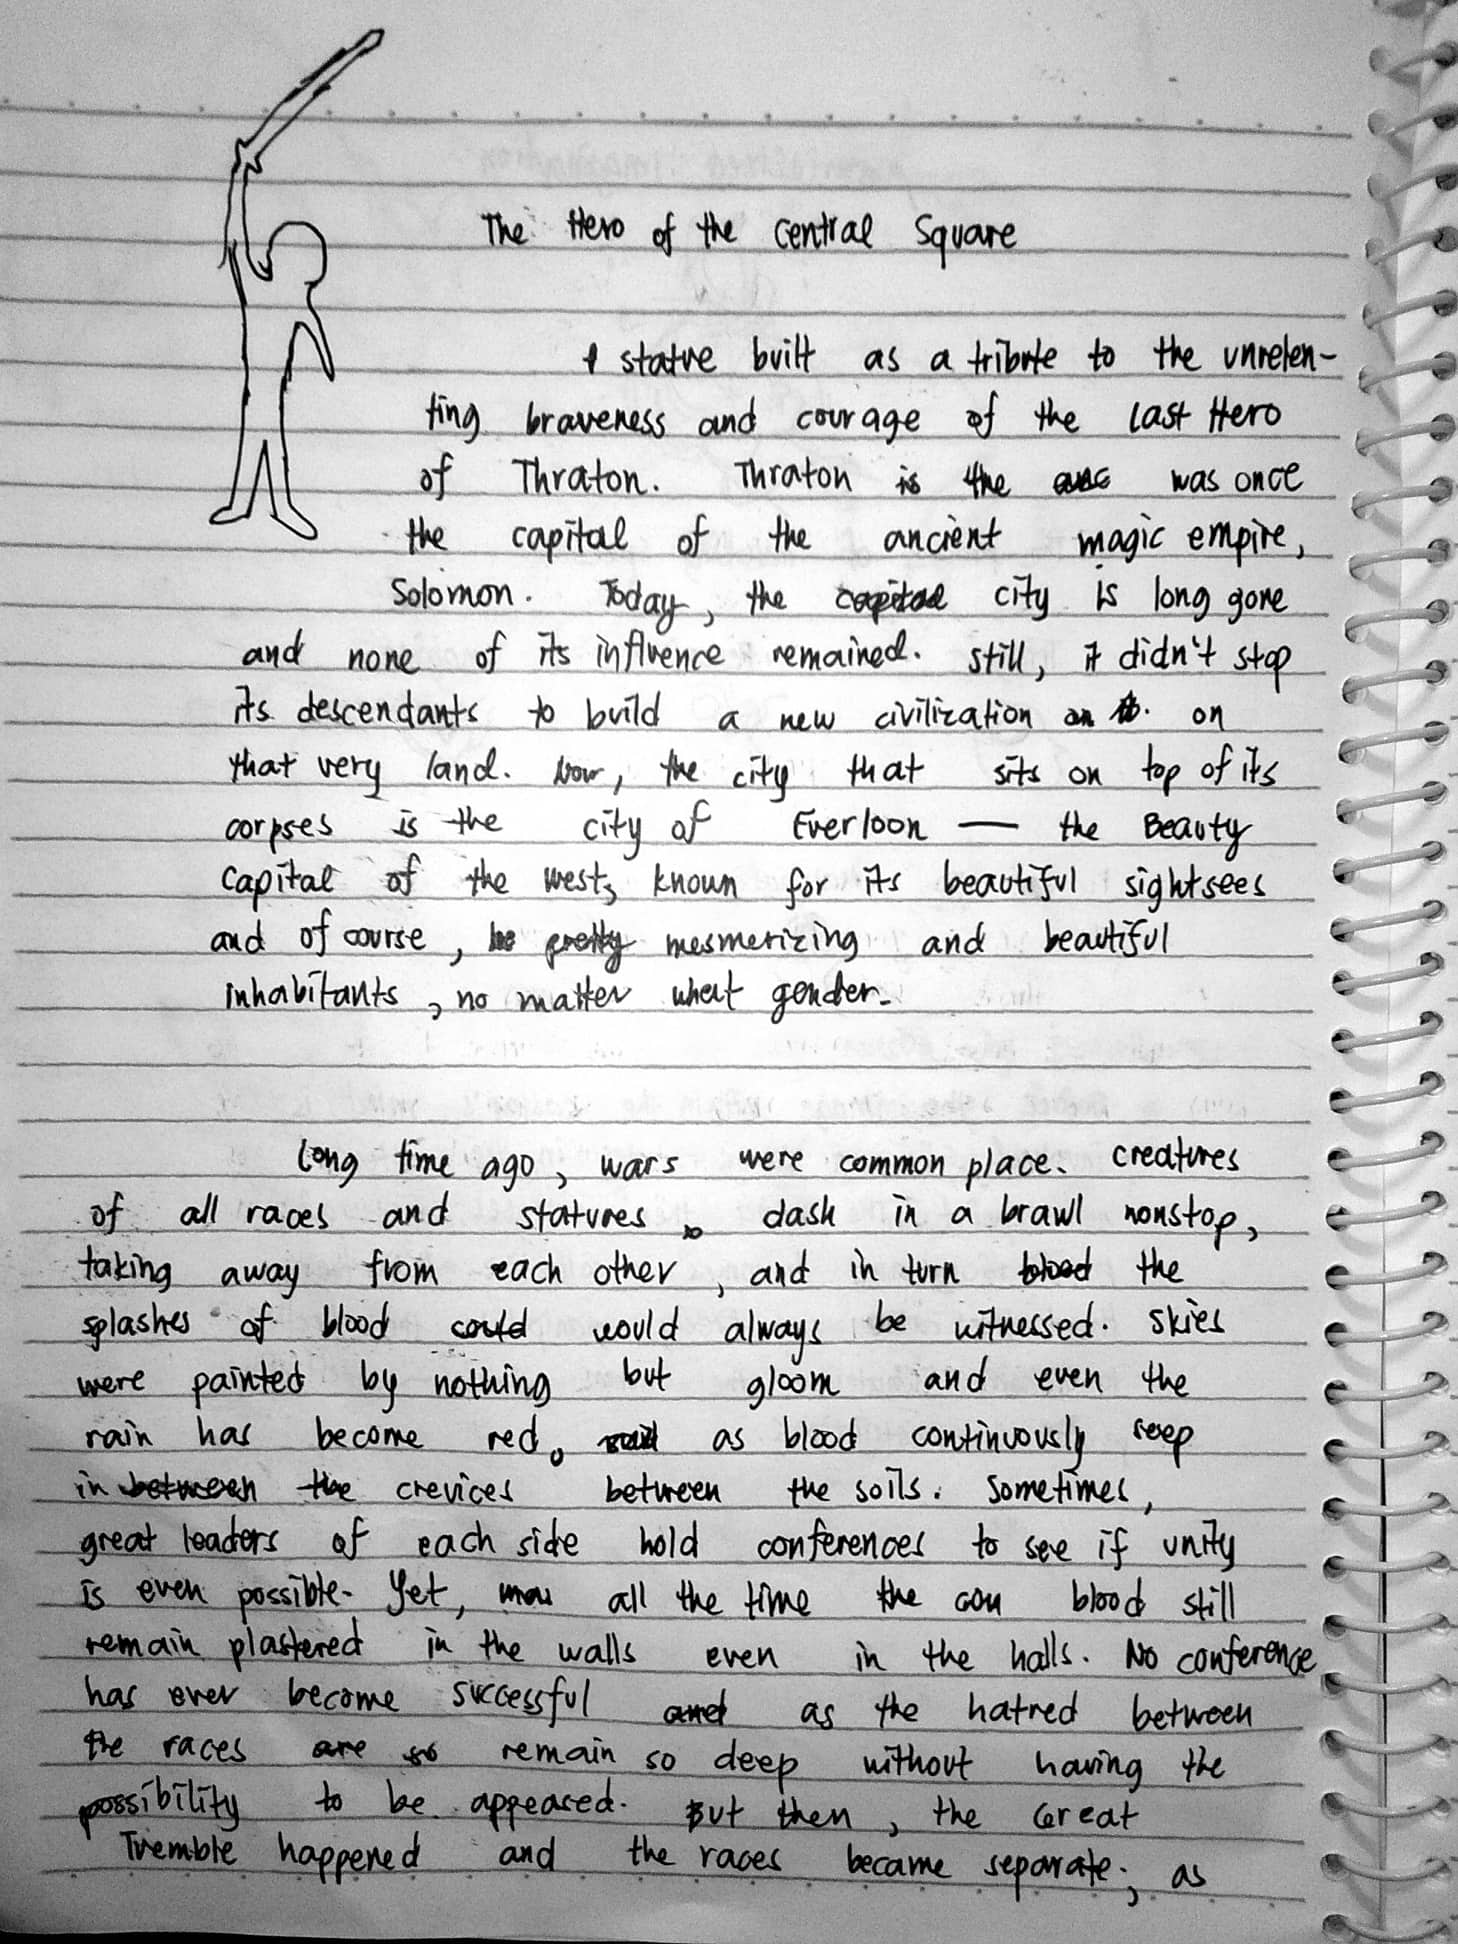 The Hero of the Central Square
A statue built as a tribute to the unrelen-
ting braveness and courage of the Last Hero
of Thraton. Thraton is the was once
the capital of the ancient magic empire,
Solomon. Today, the capital city is long gone
and none of its influence remained. Still, it didn't stop
its descendants to build a new civilization on on
that very land. Now, the city that sits on top of its
corpses is the city of Everloon — the Beauty
Capital of the west, known for its beautiful sightsees
and of course, pretty mesmerizing and beautiful
inhabitants, no matter what gender.
Long time ago, wars were common place. Creatures
of all races and statures, dash in a brawl nonstop,
taking away from each other, and in turn blood the
splashes of blood could would always be witnessed. Skies
were painted by nothing but gloom and even the
rain has become red, as blood continuously seep
in between the crevices between the soils. Sometimes,
great leaders of each side hold conferences to see if unity
is even possible. Yet, all the time the con blood still
remain plastered in the walls even in the halls. No conference
has ever become successful and as the hatred between
the races are so remain so deep without having the
possibility to be appeased. But then, the Great
Tremble happened and the races became separate, as